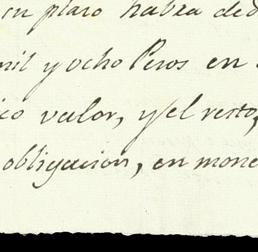 su plazo habra ded
mil y ocho Pesos en
co valor, y el resto,
obligacion, en mone